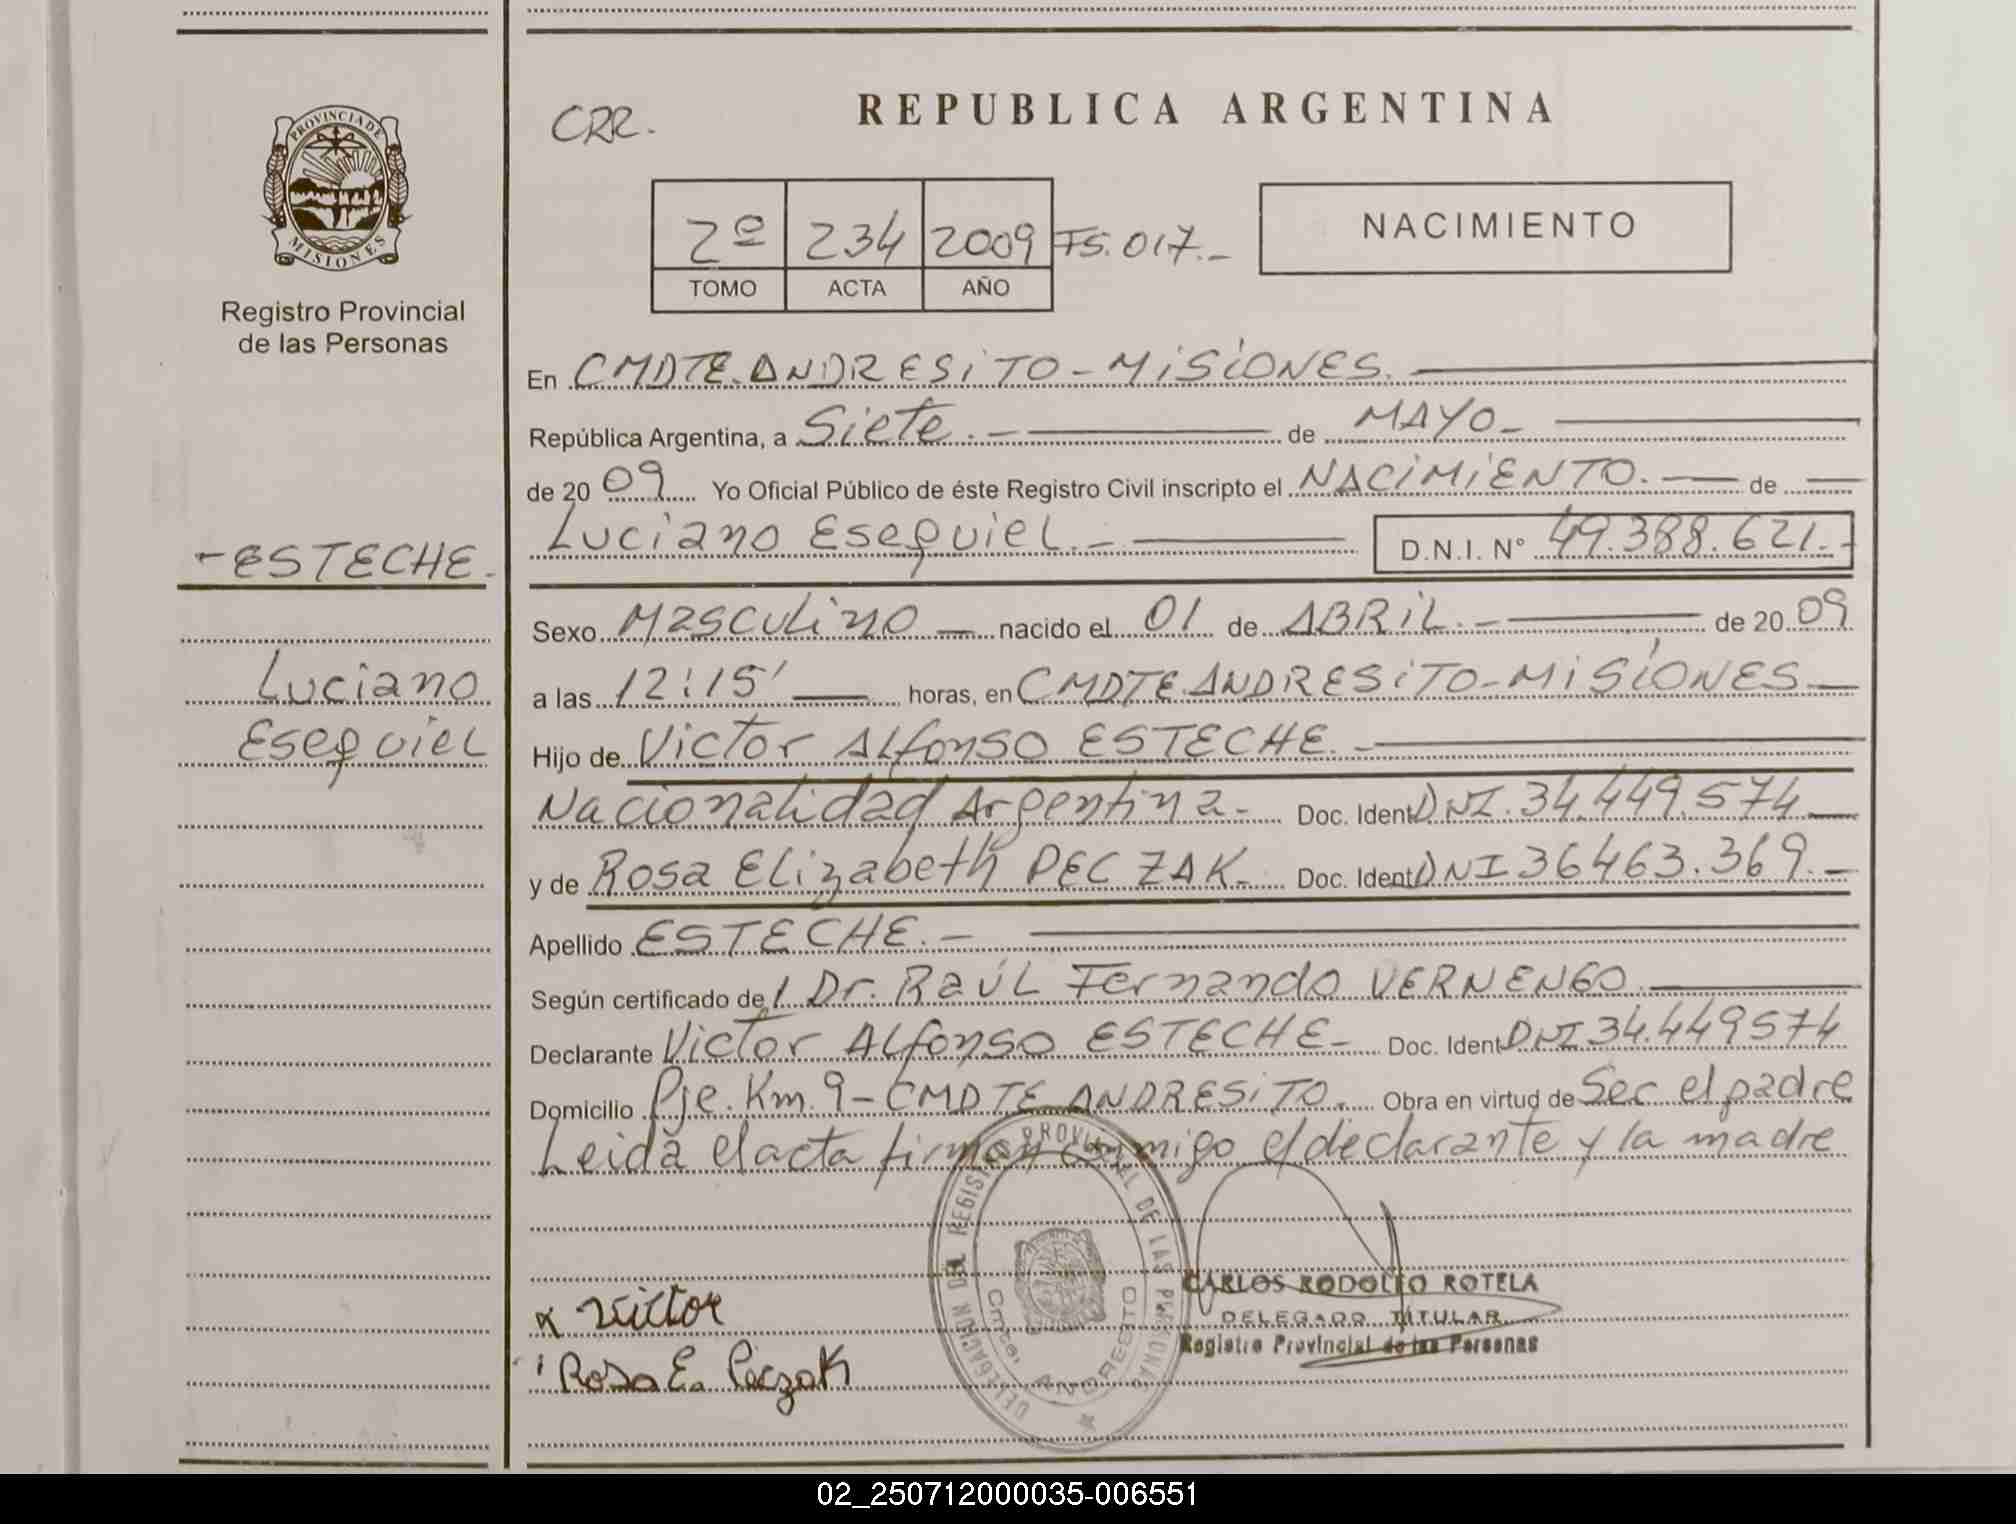 PROVINCIA DE
MISIONES
Registro Provincial
de las Personas
- ESTECHE.
Luciano
Esequiel
CRR.
REPUBLICA ARGENTINA
2º 234 2009 FS. 017.-
TOMO ACTA AÑO
NACIMIENTO
En CMDTE. ANDRESITO - MISIONES.
República Argentina, a Siete. - de MAYO -
de 20 09 Yo Oficial Público de éste Registro Civil inscripto el NACIMIENTO. - de
Luciano Esequiel. - D.N.I. N° 49.388.621.-
Sexo Masculino - nacido el 01 de ABRIL. - de 20 09
a las 12:15' horas, en CMDTE. ANDRESITO - MISIONES -
Hijo de Victor Alfonso ESTECHE. -
Nacionalidad Argentina - Doc. Ident DNI. 34.449.574
y de Rosa Elizabeth PECZAK - Doc. Ident DNI 36463.369. -
Apellido ESTECHE. -
Según certificado de l Dr. Raúl Fernando VERNENGO.
Declarante Victor Alfonso ESTECHE - Doc. Ident DNI 34.449574
Domicilio Pje. Km. 9 - CMDTE ANDRESITO. Obra en virtud de Sec el padre
Leida el acta firman conmigo el declarante y la madre
DELEGACION DEL REGISTRO PROVINCIAL DE LAS PERSONAS
Cmte. ANDRESITO
CARLOS RODOLFO ROTELA
DELEGADO TITULAR
Registro Provincial de las Personas
x Victor
Rosa E. Peczak
02_250712000035-006551